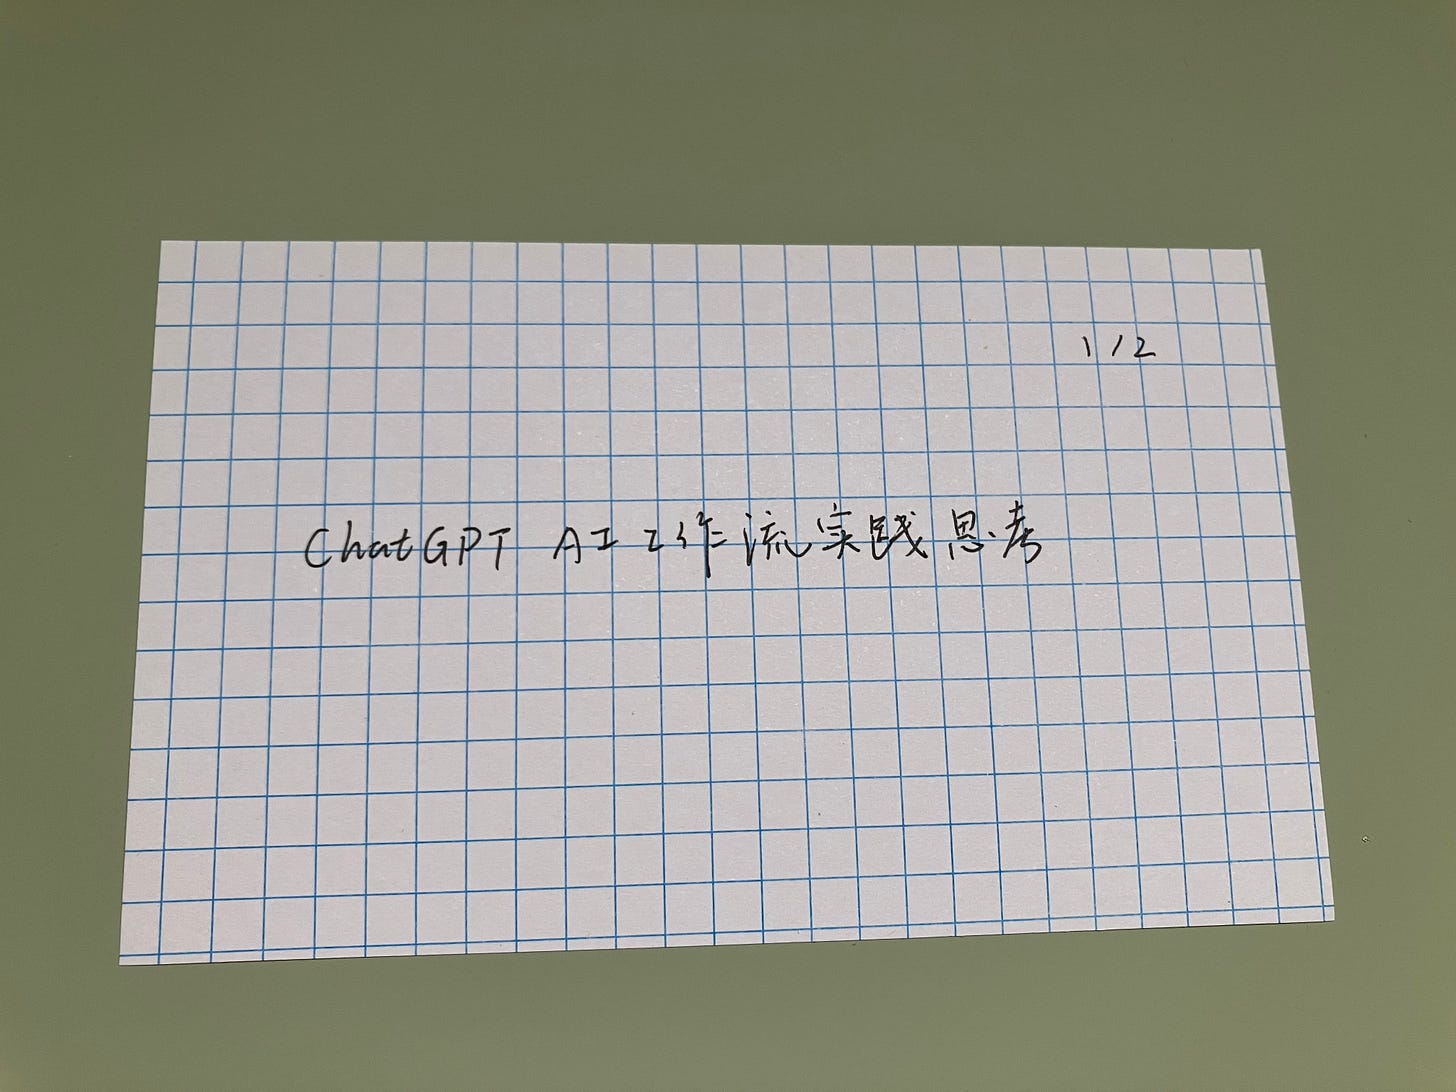 1/2
ChatGPT AI工作流实践思考